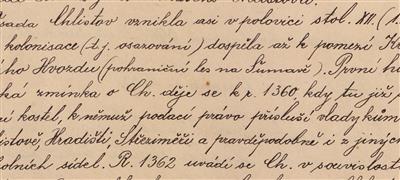 sada Chlistov vznikla asi v polovici stol. XII. (1.
kolonisace (t.j. osazování) dospěla až k pomezí K
ého Hvozdu (pohraniční les na Šumavě). První h
ká zmínka o Ch. děje se k r. 1360 kdy tu již
kostel, k němuž podací právo přísluší vladykům
listově, Hradišti, Střeziměři a pravděpodobně i z jiných
kolních sídel. R. 1362 uvádí se Ch. v souvislosti